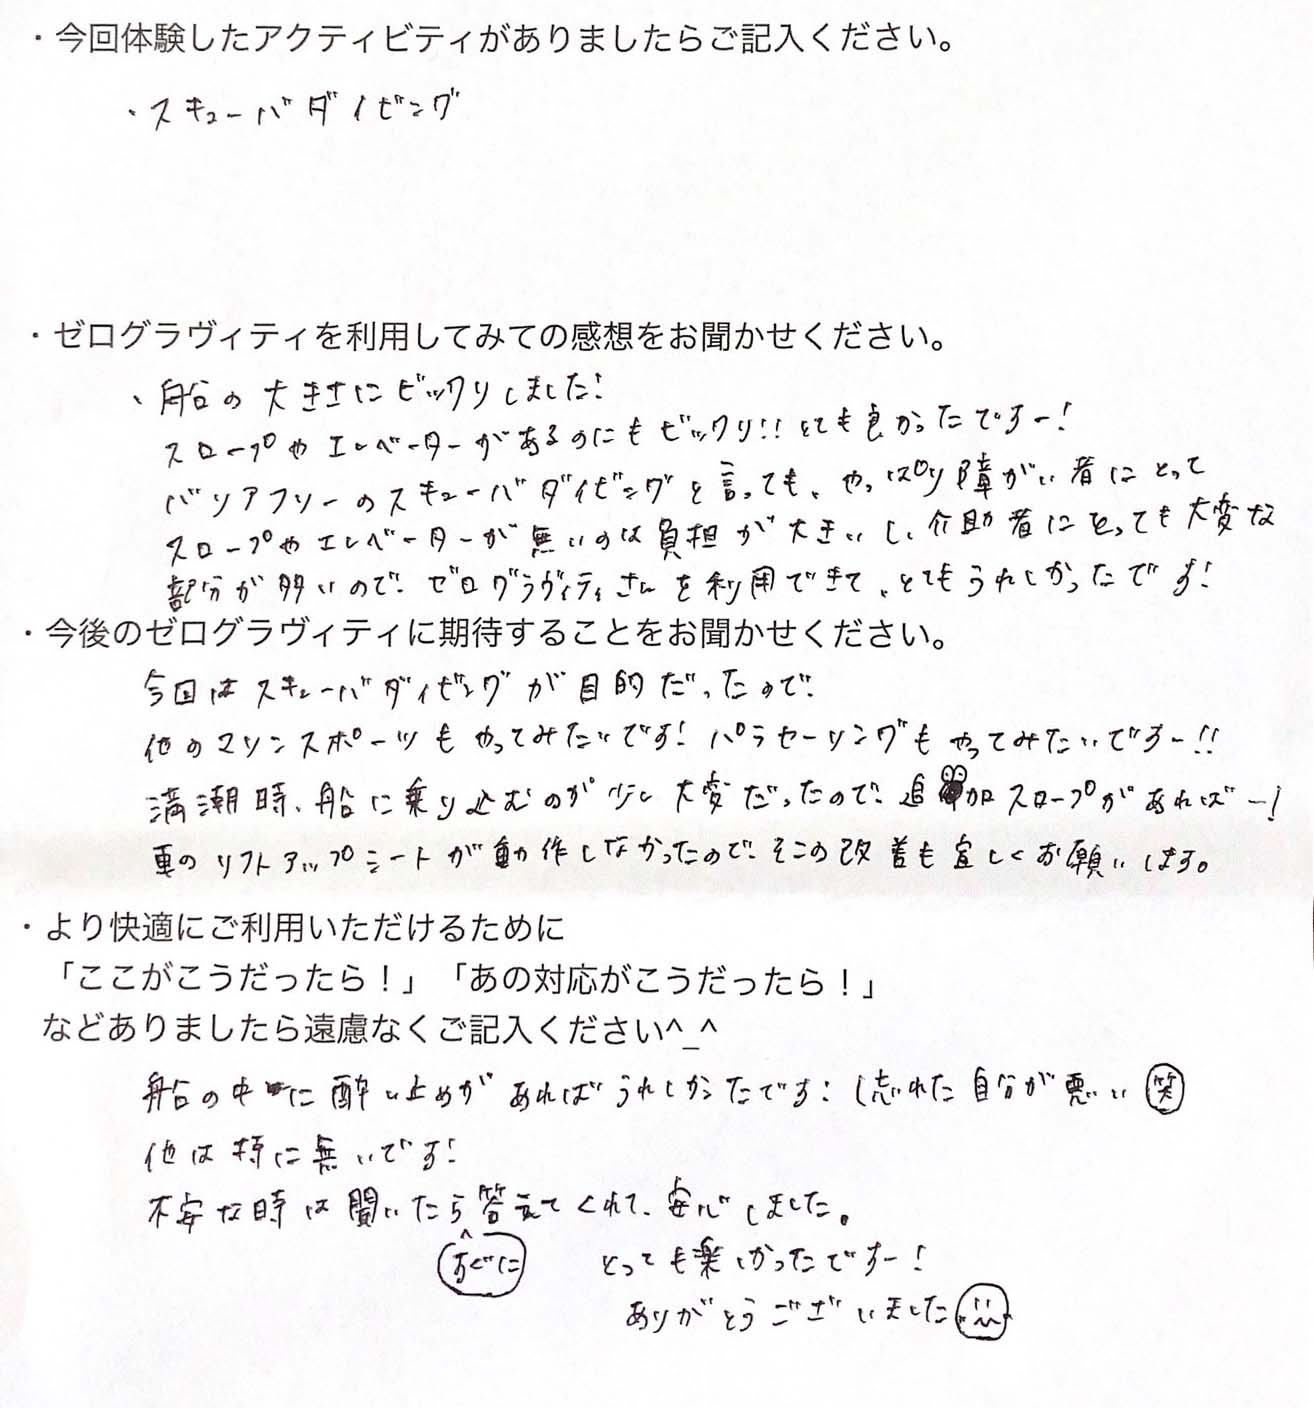 ・今回体験したアクティビティがありましたらご記入ください。
・スキューバダイビング
・ゼログラヴィティを利用してみての感想をお聞かせください。
・船の大きさにビックリしました!
スロープやエレベーターがあるのにもビックリ!!とても良かったですー!
バリアフリーのスキューバダイビングと言っても、やっぱり障がい者にとって
スロープやエレベーターが無いのは負担が大きいし、介助者にとっても大変な
部分が多いので、ゼログラヴィティさんを利用できて、とてもうれしかったです!
・今後のゼログラヴィティに期待することをお聞かせください。
今回はスキューバダイビングが目的だったので、
他のマリンスポーツもやってみたいです!パラセーリングもやってみたいですー!!
満潮時、船に乗り込むのが少し大変だったので、追加スロープがあればー!
車のリフトアップシートが動作しなかったので、そこの改善も宜しくお願いします。
・より快適にご利用いただけるために
「ここがこうだったら！」「あの対応がこうだったら！」
などありましたら遠慮なくご記入ください^_^
船の中に酔い止めがあればうれしかったです!(忘れた自分が悪い 笑
他は特に無いです!
不安な時は聞いたら答えてくれて、安心しました。
すぐに とっても楽しかったですー!
ありがとうございました